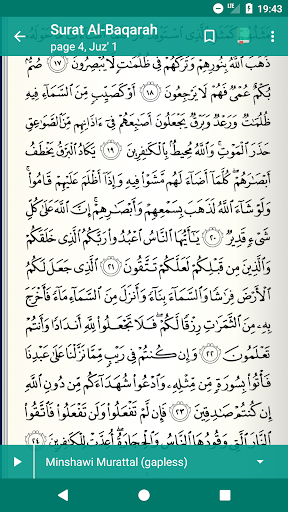 LTE 19:43
Surat Al-Baqarah
page 4, Juz' 1
ذَهَبَ ٱللَّهُ بِنُورِهِمْ وَتَرَكَهُمْ فِى ظُلُمَـٰتٍ لَّا يُبْصِرُونَ ١٧ صُمٌّۢ
بُكْمٌ عُمْىٌ فَهُمْ لَا يَرْجِعُونَ ١٨ أَوْ كَصَيِّبٍ مِّنَ ٱلسَّمَآءِ فِيهِ
ظُلُمَـٰتٌ وَرَعْدٌ وَبَرْقٌ يَجْعَلُونَ أَصَـٰبِعَهُمْ فِىٓ ءَاذَانِهِم مِّنَ ٱلصَّوَٰعِقِ
حَذَرَ ٱلْمَوْتِ ۚ وَٱللَّهُ مُحِيطٌۢ بِٱلْكَـٰفِرِينَ ١٩ يَكَادُ ٱلْبَرْقُ يَخْطَفُ
أَبْصَـٰرَهُمْ ۖ كُلَّمَآ أَضَآءَ لَهُم مَّشَوْا۟ فِيهِ وَإِذَآ أَظْلَمَ عَلَيْهِمْ قَامُوا۟ ۚ
وَلَوْ شَآءَ ٱللَّهُ لَذَهَبَ بِسَمْعِهِمْ وَأَبْصَـٰرِهِمْ ۚ إِنَّ ٱللَّهَ عَلَىٰ كُلِّ
شَىْءٍ قَدِيرٌ ٢٠ يَـٰٓأَيُّهَا ٱلنَّاسُ ٱعْبُدُوا۟ رَبَّكُمُ ٱلَّذِى خَلَقَكُمْ
وَٱلَّذِينَ مِن قَبْلِكُمْ لَعَلَّكُمْ تَتَّقُونَ ٢١ ٱلَّذِى جَعَلَ لَكُمُ
ٱلْأَرْضَ فِرَٰشًا وَٱلسَّمَآءَ بِنَآءً وَأَنزَلَ مِنَ ٱلسَّمَآءِ مَآءً فَأَخْرَجَ
بِهِۦ مِنَ ٱلثَّمَرَٰتِ رِزْقًا لَّكُمْ ۖ فَلَا تَجْعَلُوا۟ لِلَّهِ أَندَادًا وَأَنتُمْ
تَعْلَمُونَ ٢٢ وَإِن كُنتُمْ فِى رَيْبٍ مِّمَّا نَزَّلْنَا عَلَىٰ عَبْدِنَا
فَأْتُوا۟ بِسُورَةٍ مِّن مِّثْلِهِۦ وَٱدْعُوا۟ شُهَدَآءَكُم مِّن دُونِ ٱللَّهِ
إِن كُنتُمْ صَـٰدِقِينَ ٢٣ فَإِن لَّمْ تَفْعَلُوا۟ وَلَن تَفْعَلُوا۟ فَٱتَّقُوا۟
ٱلنَّارَ ٱلَّتِى وَقُودُهَا ٱلنَّاسُ وَٱلْحِجَارَةُ ۖ أُعِدَّتْ لِلْكَـٰفِرِينَ ٢٤
Minshawi Murattal (gapless)